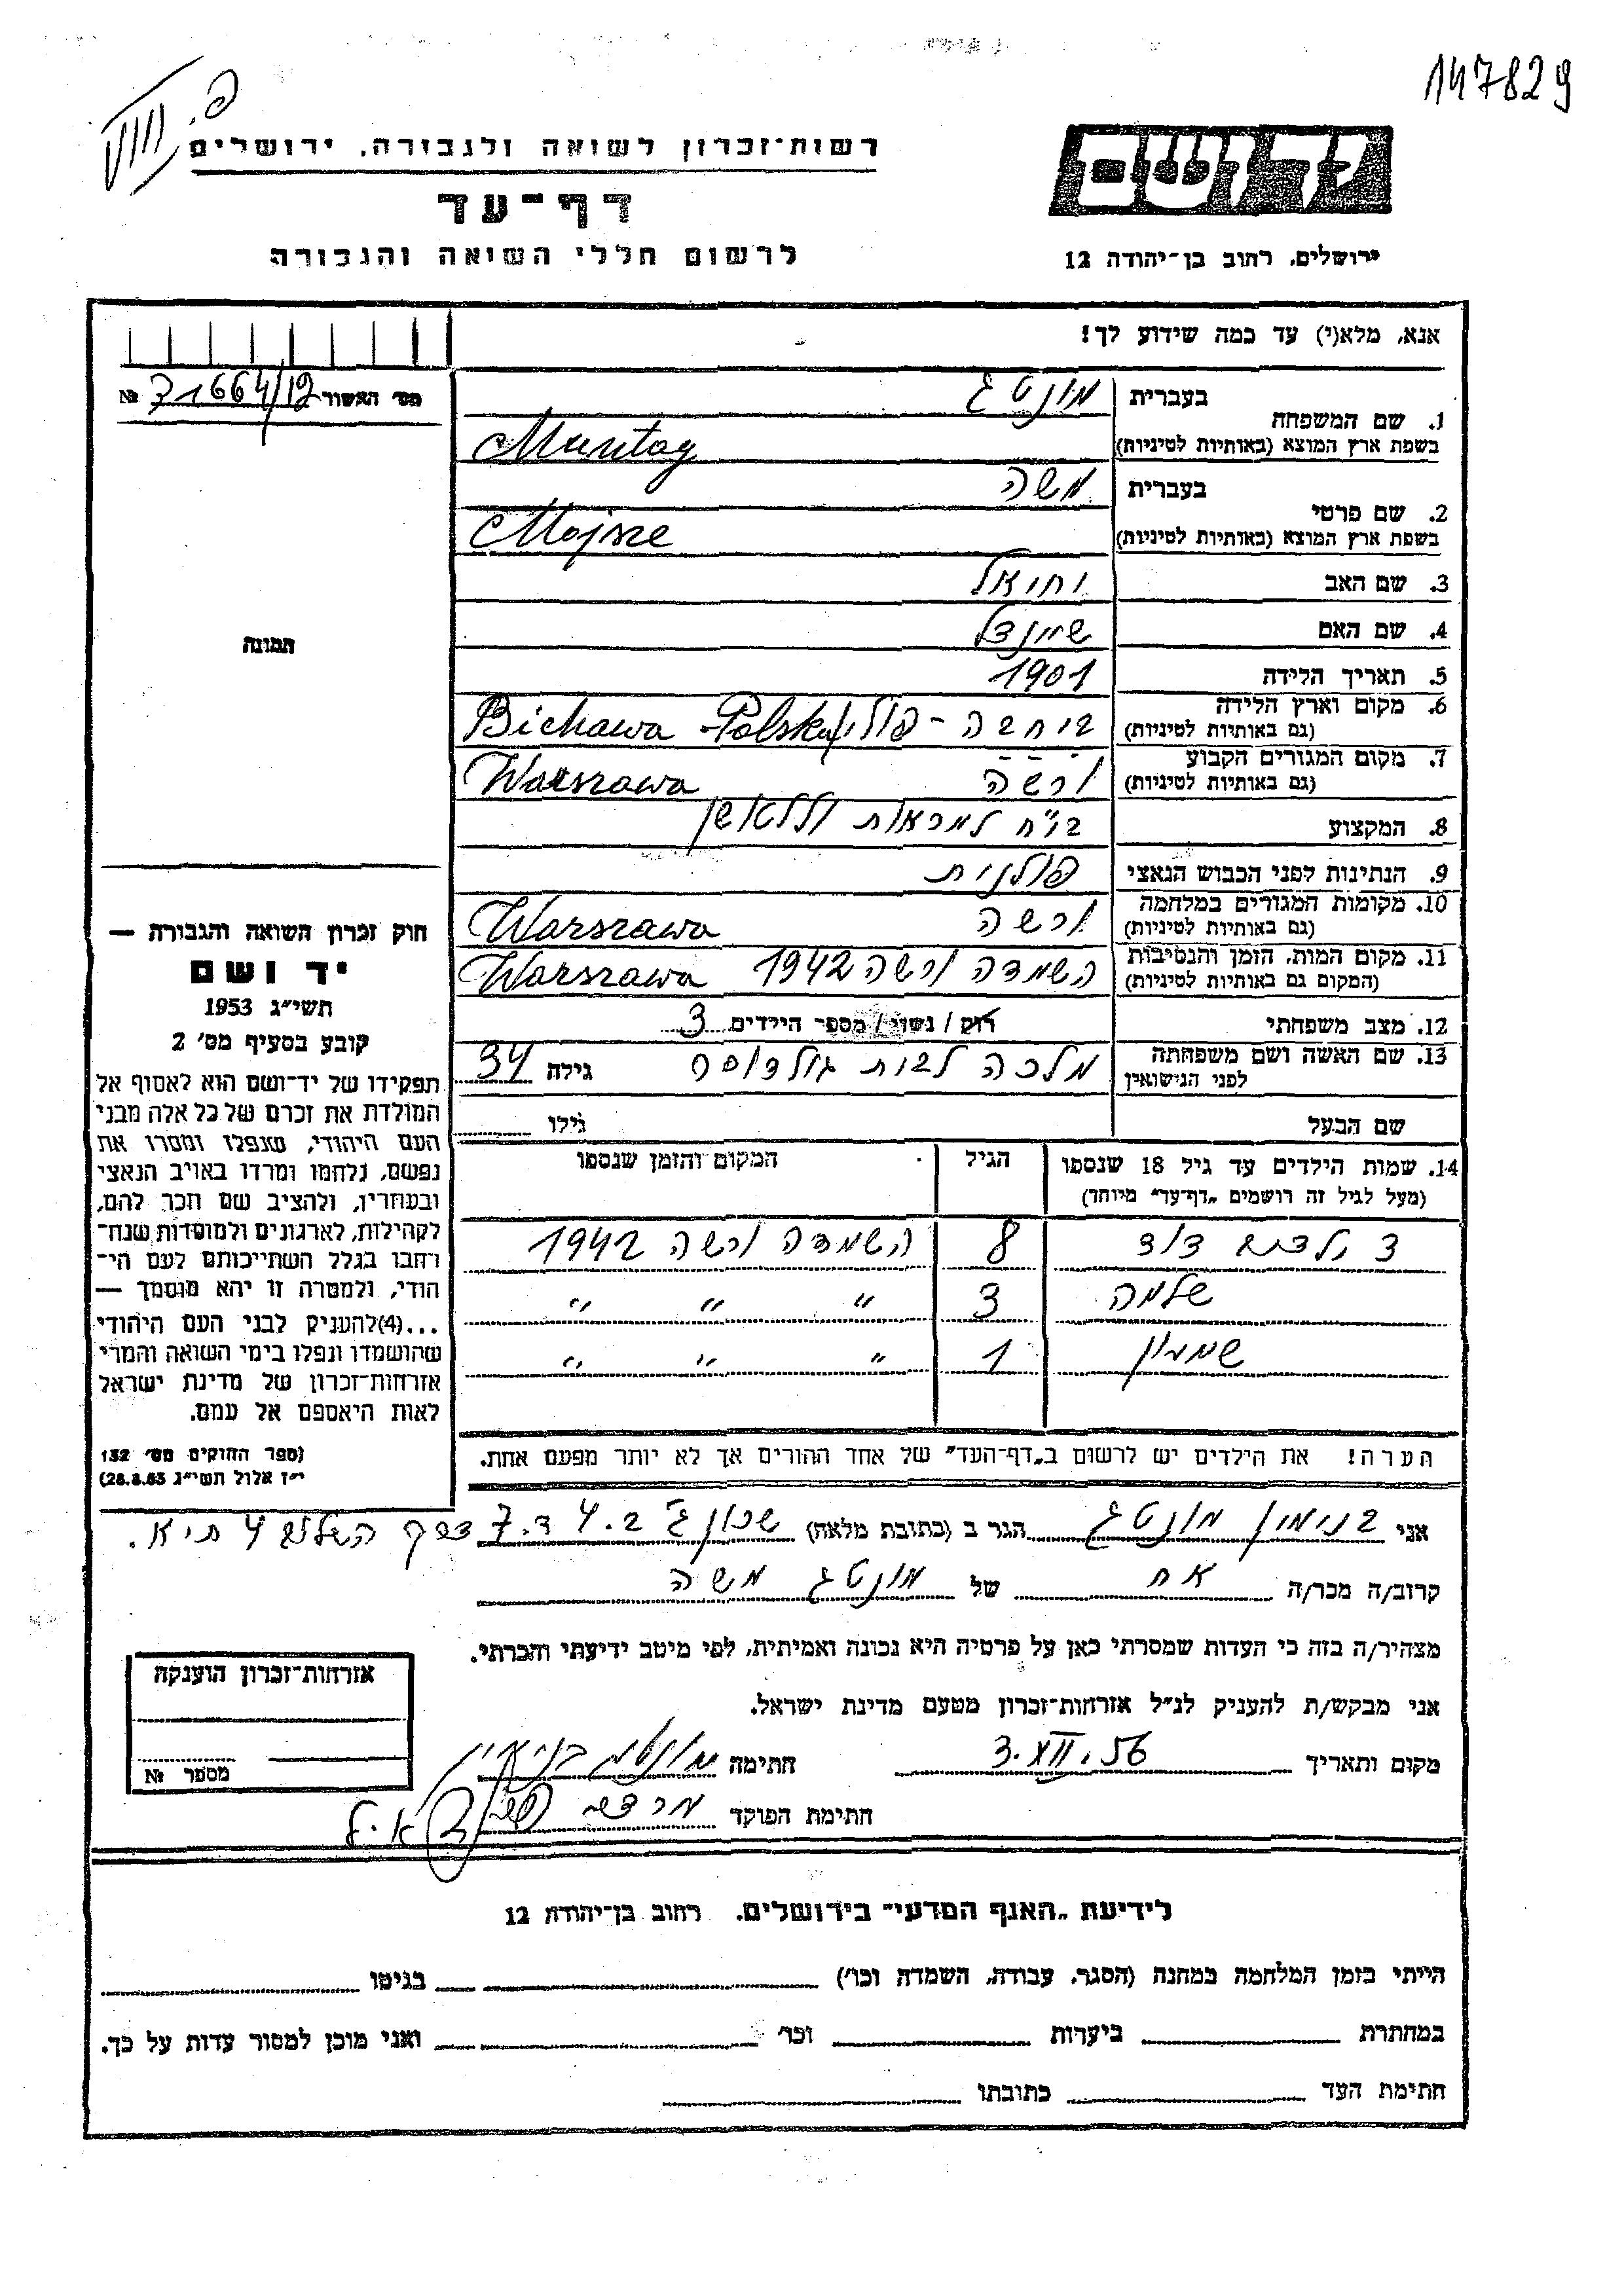 147829
רשות-זכרון לשואה ולגבורה, ירושלים
דף-עד
לרשום חללי השואה והגבורה
יד ושם
ירושלים, רחוב בן-יהודה 12
אנא, מלא(י) עד כמה שידוע לך!
מס' האשור 71664/19 №
1. שם המשפחה
בעברית מונטג
בשפת ארץ המוצא (באותיות לטיניות) Muntag
2. שם פרטי
בעברית משה
בשפת ארץ המוצא (באותיות לטיניות) Mojsze
3. שם האב יחיאל
4. שם האם שיינדל
5. תאריך הלידה 1901
6. מקום וארץ הלידה
(גם באותיות לטיניות) ביחבה - פולין Bichawa - Polska
7. מקום המגורים הקבוע
(גם באותיות לטיניות) ורשה Warszawa
8. המקצוע בי"ח למראות
9. הנתינות לפני הכבוש הנאצי פולנית
10. מקומות המגורים במלחמה
(גם באותיות לטיניות) ורשה Warszawa
11. מקום המות, הזמן והנסיבות
(המקום גם באותיות לטיניות) השמדה ורשה 1942 Warszawa
12. מצב משפחתי רוק / נשוי / מספר הילדים 3
13. שם האשה ושם משפחתה
לפני הנישואין מלכה לבית גולדוסר גילה 34
שם הבעל גילו
14. שמות הילדים עד גיל 18 שנספו
(מעל לגיל זה רושמים "דף-עד" מיוחד)
הגיל
המקום והזמן שנספו
דוד 8 השמדה ורשה 1942
שלמה 3 " " "
שמעון 1 " " "
הערה! את הילדים יש לרשום ב"דף-העד" של אחד ההורים אך לא יותר מפעם אחת.
תמונה
חוק זכרון השואה והגבורה —
יד ושם
תשי"ג 1953
קובע בסעיף מס' 2
תפקידו של יד-ושם הוא לאסוף אל
המולדת את זכרם של כל אלה מבני
העם היהודי, שנפלו ומסרו את
נפשם, נלחמו ומרדו באויב הנאצי
ובעוזריו, ולהציב שם וזכר להם,
לקהילות, לארגונים ולמוסדות שנח-
רחבו בגלל השתייכותם לעם הי-
הודי, ולמטרה זו יהא מוסמך —
...(4)להעניק לבני העם היהודי
שהושמדו ונפלו בימי השואה והמרי
אזרחות-זכרון של מדינת ישראל
לאות היאספם אל עמם.
(ספר החוקים מס' 132
י"ז אלול תשי"ג 28.8.53)
אני בנימין מונטג הגר ב (כתובת מלאה) שכון ג' ב. 4 ד. 7
קרוב/ה מכר/ה אח של מונטג משה
מצהיר/ה בזה כי העדות שמסרתי כאן על פרטיה היא נכונה ואמיתית, לפי מיטב ידיעתי והכרתי.
אני מבקש/ת להעניק לנ"ל אזרחות-זכרון מטעם מדינת ישראל.
מקום ותאריך 3.XII.56 חתימה מונטג בנימין
חתימת הפוקד
אזרחות-זכרון הוענקה
מספר №
לידיעת "האגף המדעי" בירושלים, רחוב בן-יהודה 12
הייתי בזמן המלחמה במחנה (הסגר, עבודה, השמדה וכו') בגיטו
במחתרת ביערות וכו' ואני מוכן למסור עדות על כך.
חתימת העד כתובתו